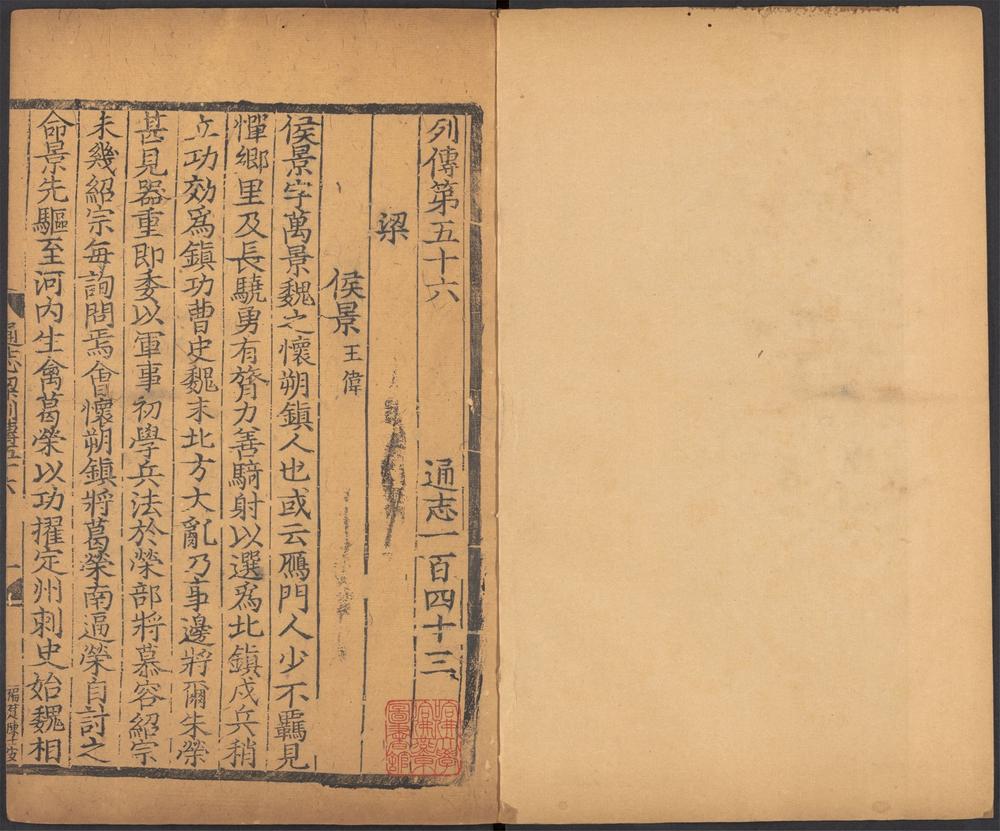 列傳第五十六　通志一百四十三
梁
侯景　王偉
侯景字萬景魏之懷朔鎮人也或云鴈門人少不羈見
憚鄉里及長驍勇有膂力善騎射以選爲北鎮戍兵稍
立功効爲鎮功曹史魏末北方大亂乃事邊將爾朱榮
甚見器重即委以軍事初學兵法於榮部將慕容紹宗
未幾紹宗每詢問焉會懷朔鎮將葛榮南逼榮自討之
命景先驅至河內生禽葛榮以功擢定州刺史始魏相
通志梁列傳五十六
一
哈佛大學哈佛燕京圖書館